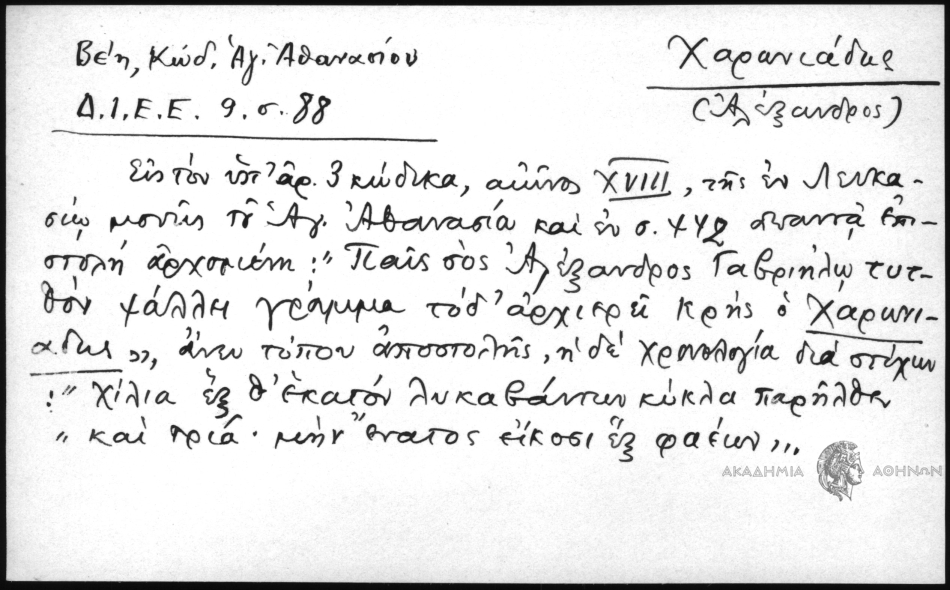 Βέη, Κώδ. Ἁγ. Ἀθανασίου
Δ.Ι.Ε.Ε. 9. σ. 88
Χαρωνιάδης
(Ἀλέξανδρος)
Εἰς τόν ὑπ' ἀρ. 3 κώδικα, αἰῶνος XVIII, τῆς ἐν Λευκα-
σίῳ μονῆς τοῦ Ἁγ. Ἀθανασίου καί ἐν σ. 442 ἀπαντᾷ ἐπι-
στολή ἀρχομένη: "Παῖς σὸς Ἀλέξανδρος Γαβριήλῳ τυτ-
θὸν ψάλλει γράμμα τόδ' ἀρχιερεῖ Κρής ὁ Χαρωνι-
άδης", ἄνευ τόπου ἀποστολῆς, ἡ δέ χρονολογία διά στίχων
: "χίλια ἓξ θ' ἑκατόν λυκαβάντων κύκλα παρῆλθεν
" καί τριά· μήν ἔνατος εἴκοσι ἓξ φαέων"..
ΑΚΑΔΗΜΙΑ ΑΘΗΝΩΝ